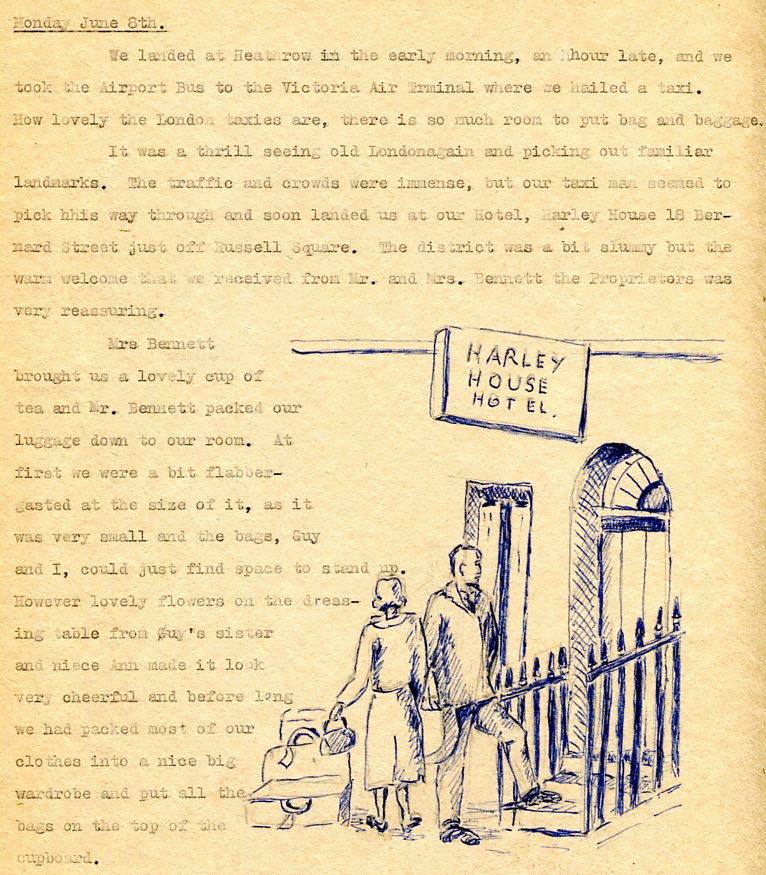 Monday June 8th.
We landed at Heathrow in the early morning, an hour late, and we
took the Airport Bus to the Victoria Air Erminal where we hailed a taxi.
How lovely the London taxies are, there is so much room to put bag and baggage.
It was a thrill seeing old Londonagain and picking out familiar
landmarks. The traffic and crowds were immense, but our taxi man seemed to
pick hhis way through and soon landed us at our Hotel, Harley House 18 Ber-
nard Street just off Russell Square. The district was a bit slummy but the
warm welcome that we received from Mr. and Mrs. Bennett the Proprietors was
very reassuring.
Mrs Bennett
brought us a lovely cup of
tea and Mr. Bennett packed our
luggage down to our room. At
first we were a bit flabber-
gasted at the size of it, as it
was very small and the bags, Guy
and I, could just find space to stand up.
However lovely flowers on the dress-
ing table from Guy's sister
and niece Ann made it look
very cheerful and before long
we had packed most of our
clothes into a nice big
wardrobe and put all the
bags on the top of the
cupboard.
HARLEY
HOUSE
HOTEL.